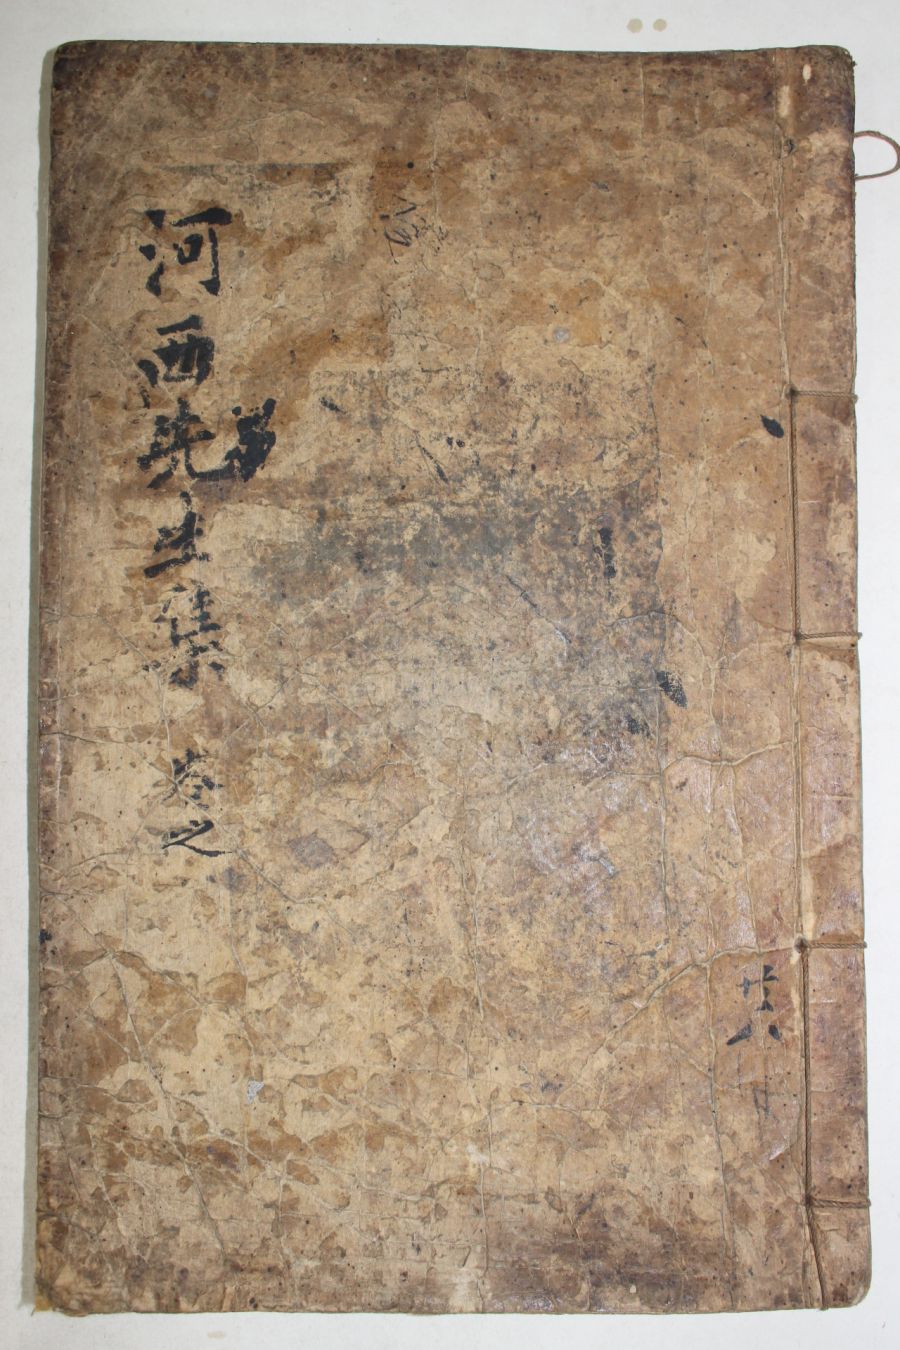 河西先生集 卷之
共八